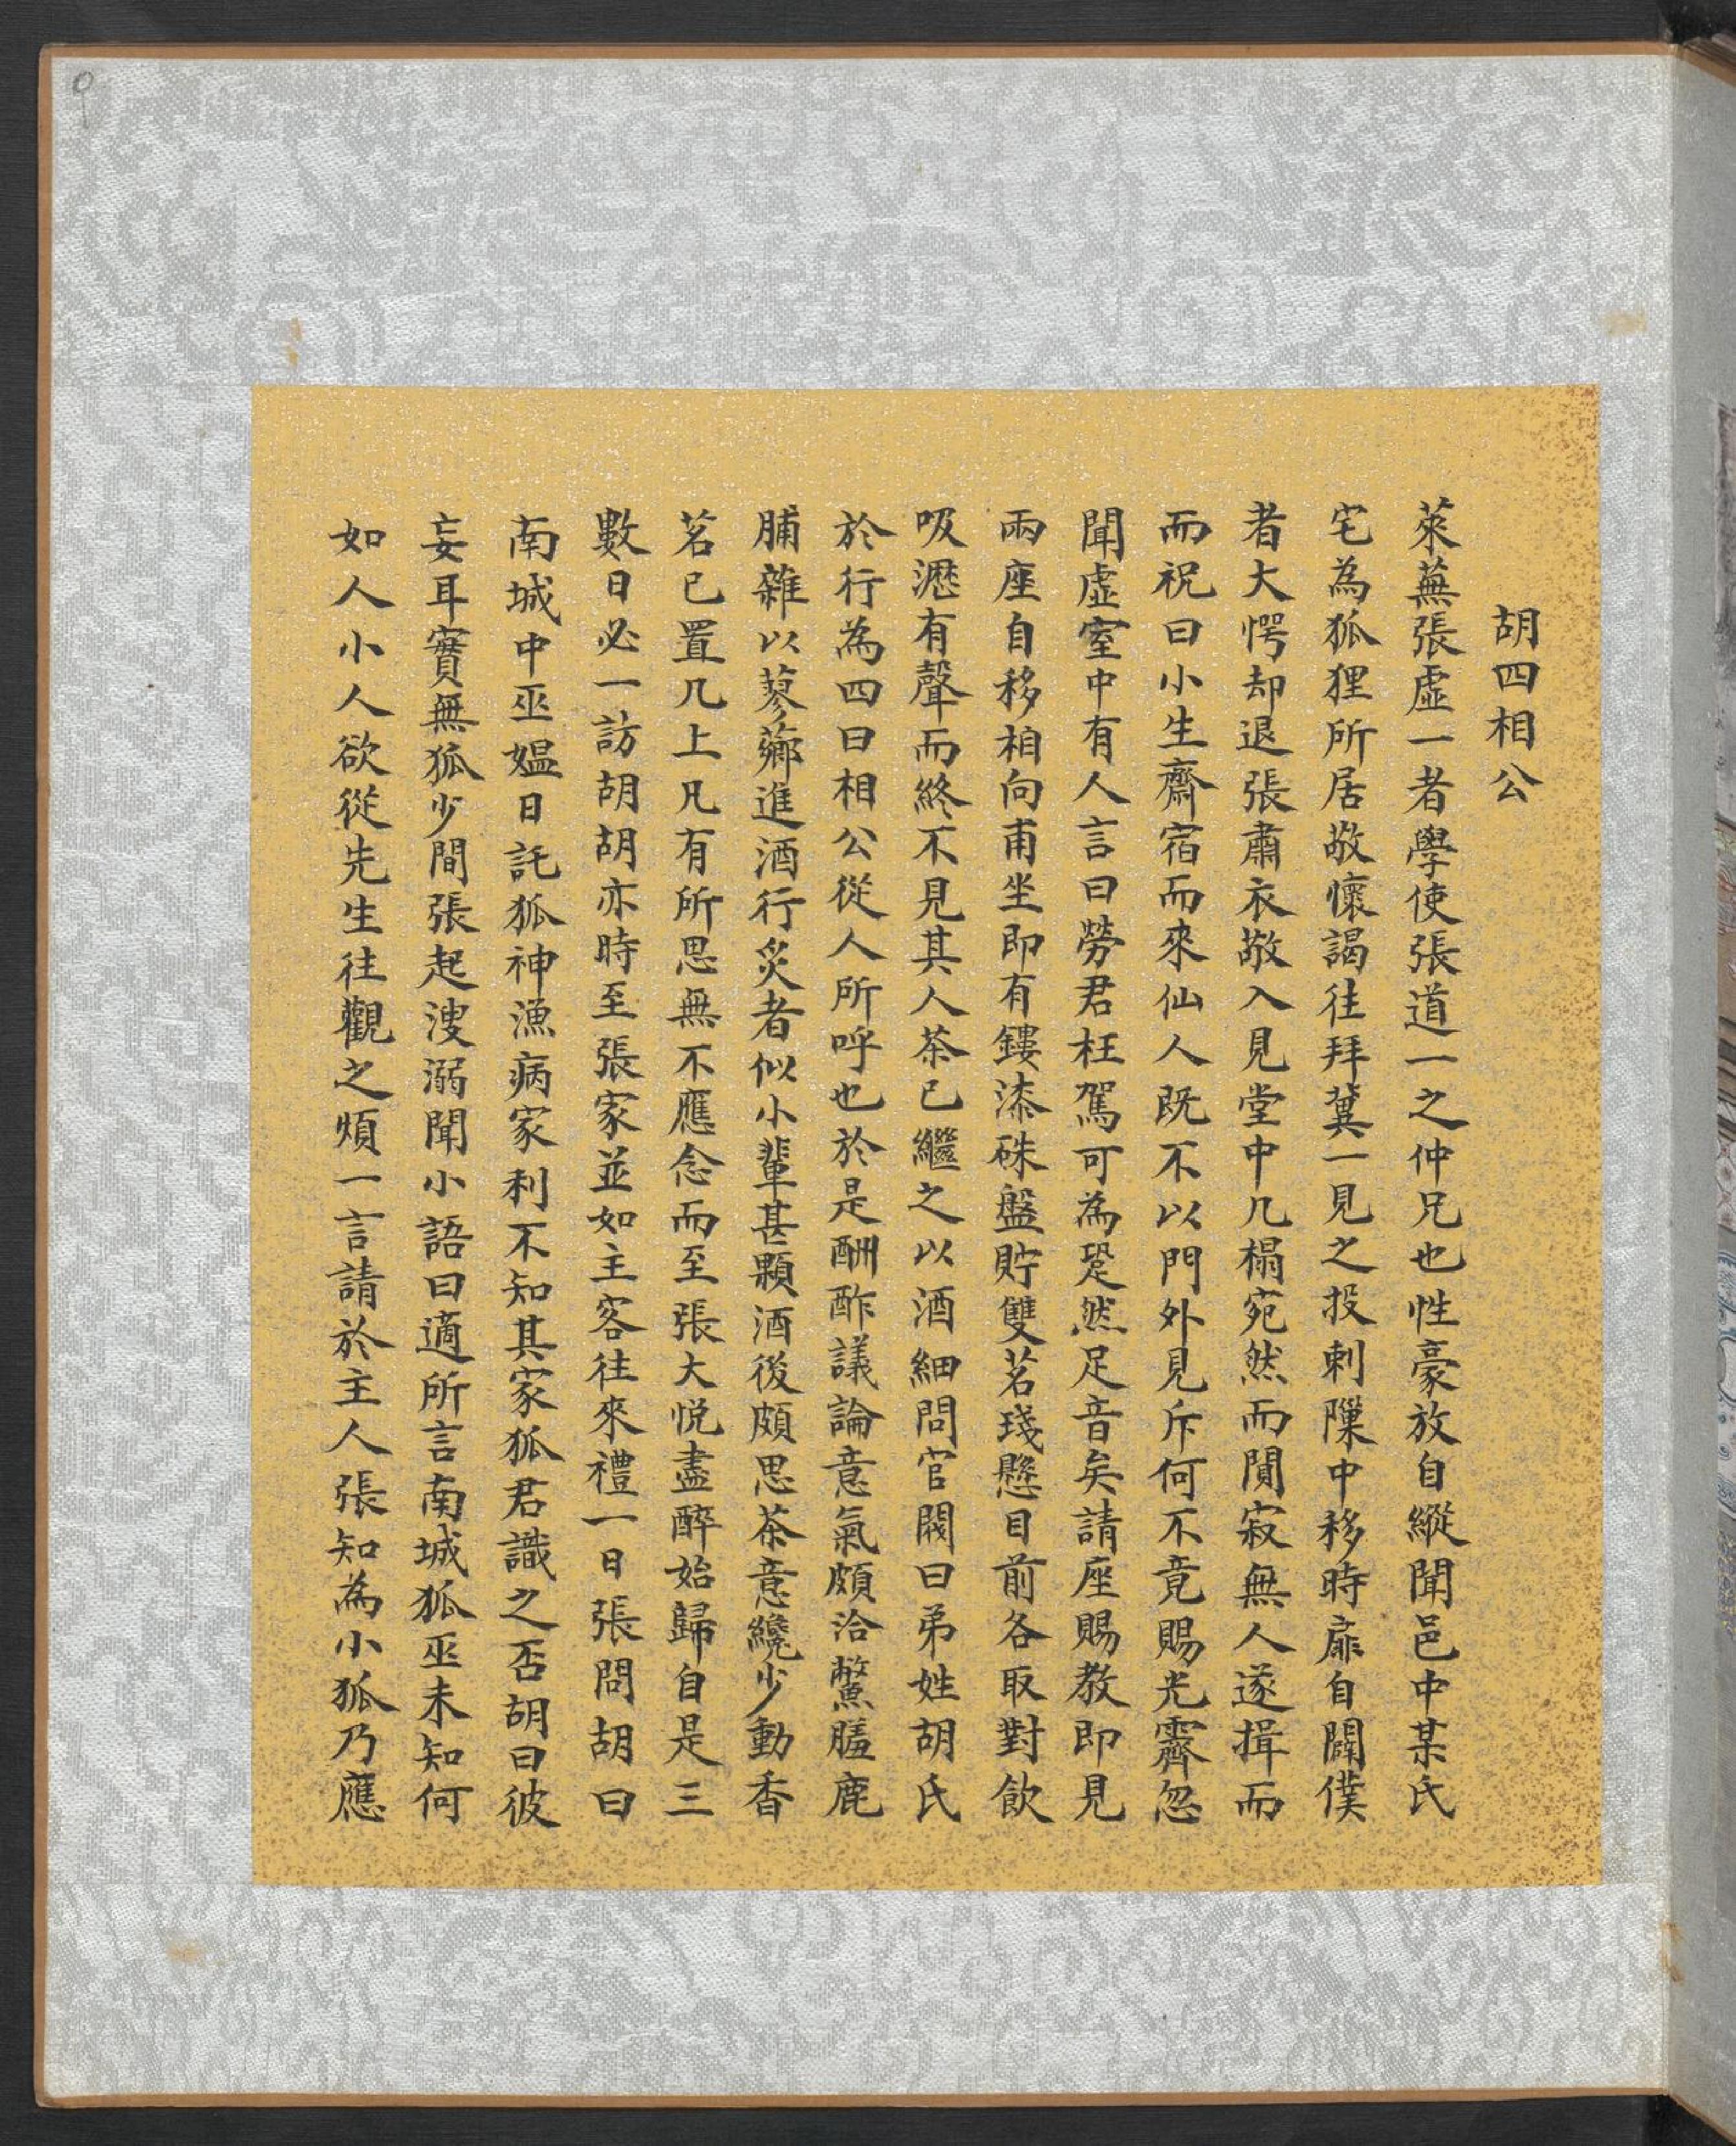 胡四相公
萊蕪張虛一者學使張道一之仲兄也性豪放自縱聞邑中某氏
宅為狐狸所居敬懷謁往拜冀一見之投刺隟中移時扉自闢僕
者大愕却退張肅衣敬入見堂中几榻宛然而閴寂無人遂揖而
而祝曰小生齋宿而來仙人既不以門外見斥何不竟賜光霽忽
聞虛室中有人言曰勞君枉駕可為跫然足音矣請座賜教即見
兩座自移相向甫坐即有鏤漆硃盤貯雙茗琖懸目前各取對飲
吸瀝有聲而終不見其人茶已繼之以酒細問官閥曰弟姓胡氏
於行為四曰相公從人所呼也於是酬酢議論意氣頗洽鱉膳鹿
脯雜以蓼薌進酒行炙者似小輩甚顆酒後頗思茶意纔少動香
茗已置几上凡有所思無不應念而至張大悅盡醉始歸自是三
數日必一訪胡胡亦時至張家並如主客往來禮一日張問胡曰
南城中巫媼日託狐神漁病家利不知其家狐君識之否胡曰彼
妄耳實無狐少間張起溲溺聞小語曰適所言南城狐巫未知何
如人小人欲從先生往觀之煩一言請於主人張知為小狐乃應